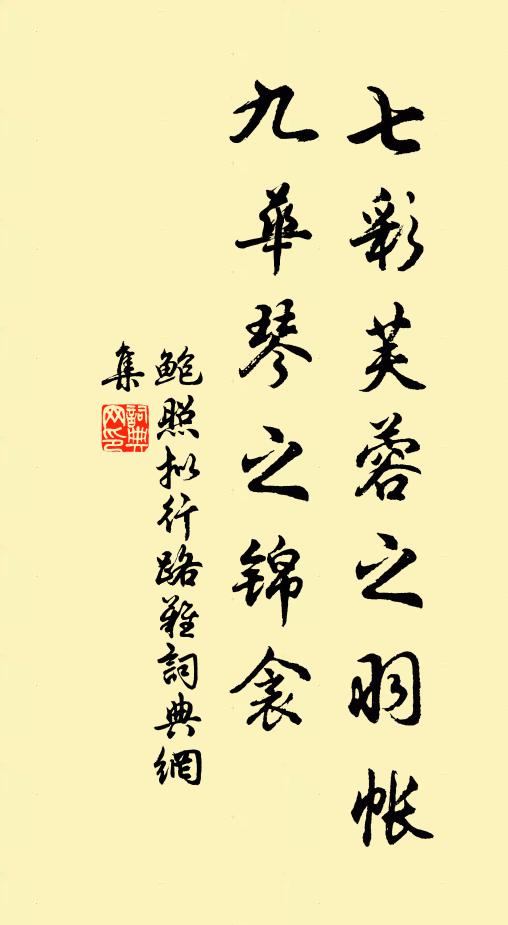 七彩芙蓉之羽帳
九華琴之錦衾
鮑照拟行路難詞典網
集
詞典网印